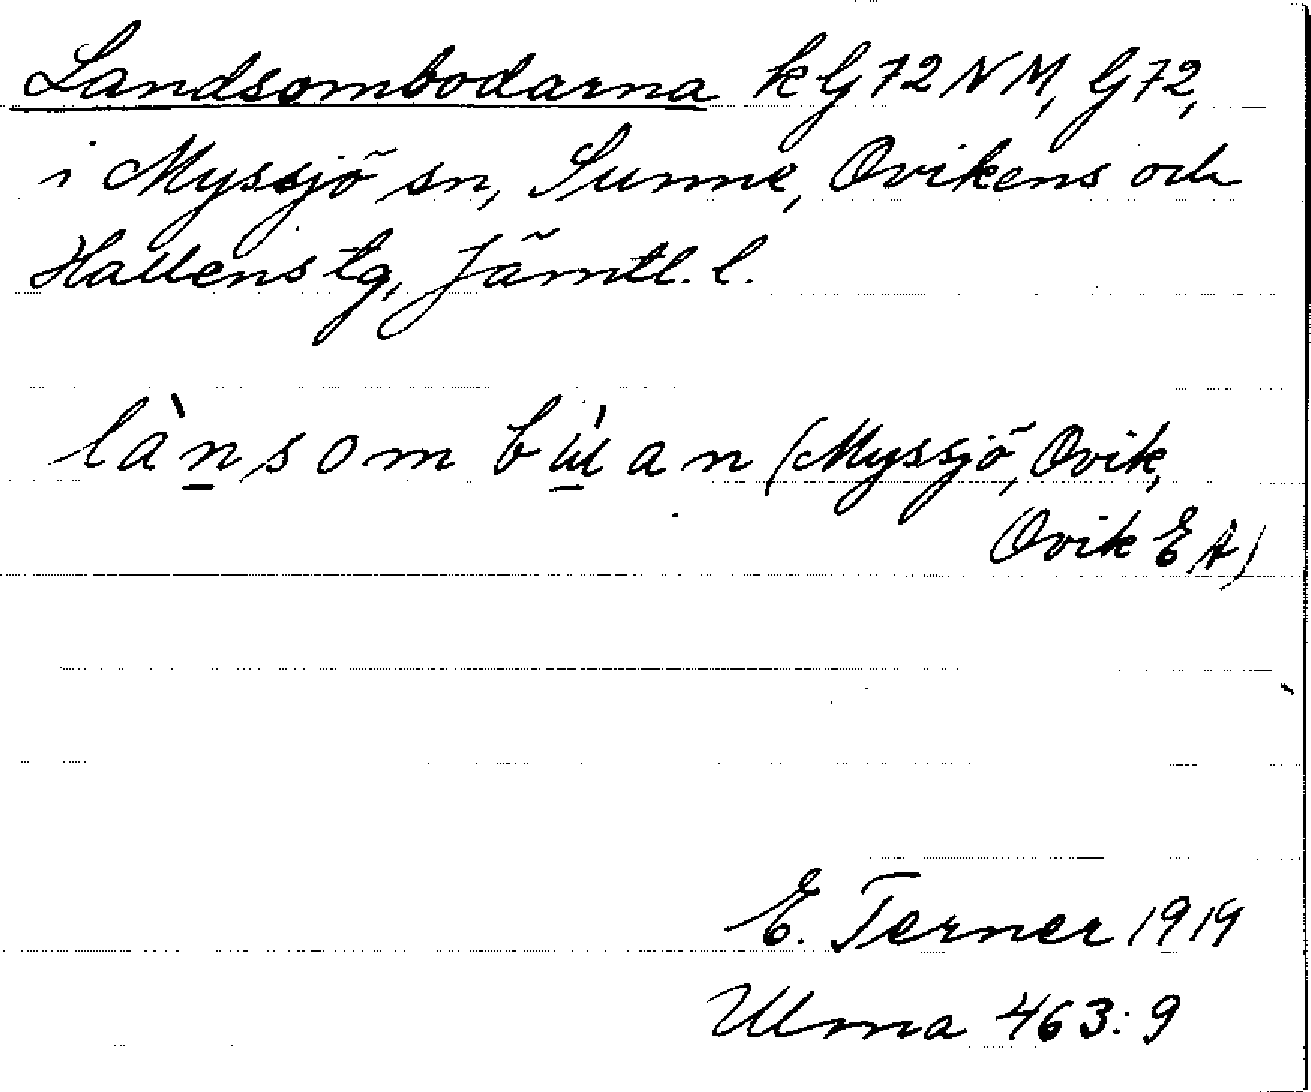 Landsombodarna k G72NM, G72,
i Myssjö sn, Sunne, Ovikens och
Hallens tg, Jämtl. l.
lànsom bɯ́an (Myssjö, Ovik,
Ovik EA)
E. Terner 1919
Ulma 463:9